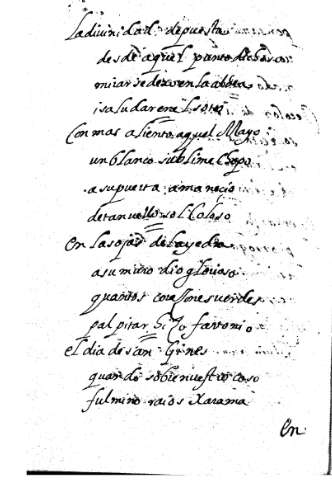 la divinidad depuesta
desde aquel punto dichosa
mirar se dexo en la aldea
i saludar en el soto
Con mas aliento aquel Mayo
un blanco sublime chopo
a su puerta amanecio
de tan vello sol Coloso
En las ojas de la yedra
a su muro dio glorioso
quantos coraçones verdes
palpitar hiço fauonio
el dia de san Gines
quando sobre nuestro coso
fulmino raios Xarama
en